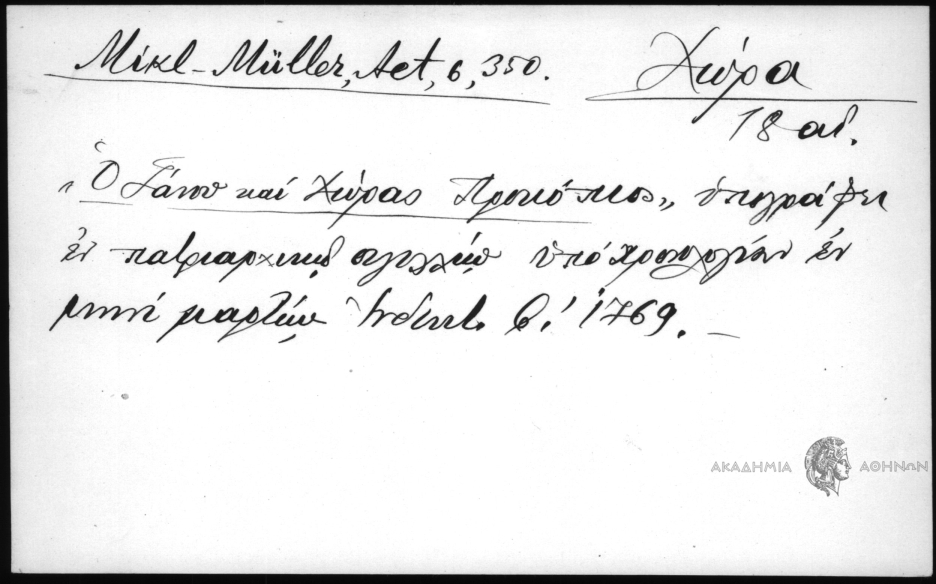 Mikl-Müller, Act, 6, 350.
Χώρα
18 αἰ.
"Ὁ Γάνου καί Χώρας Προκόπιος,, ὑπογράφει
ἐν πατριαρχικῷ σιγιλλίῳ ὑπό χρονολογίαν ἐν
μηνί μαρτίῳ Ἰνδικτ. β! 1769. –
ΑΚΑΔΗΜΙΑ ΑΘΗΝΩΝ